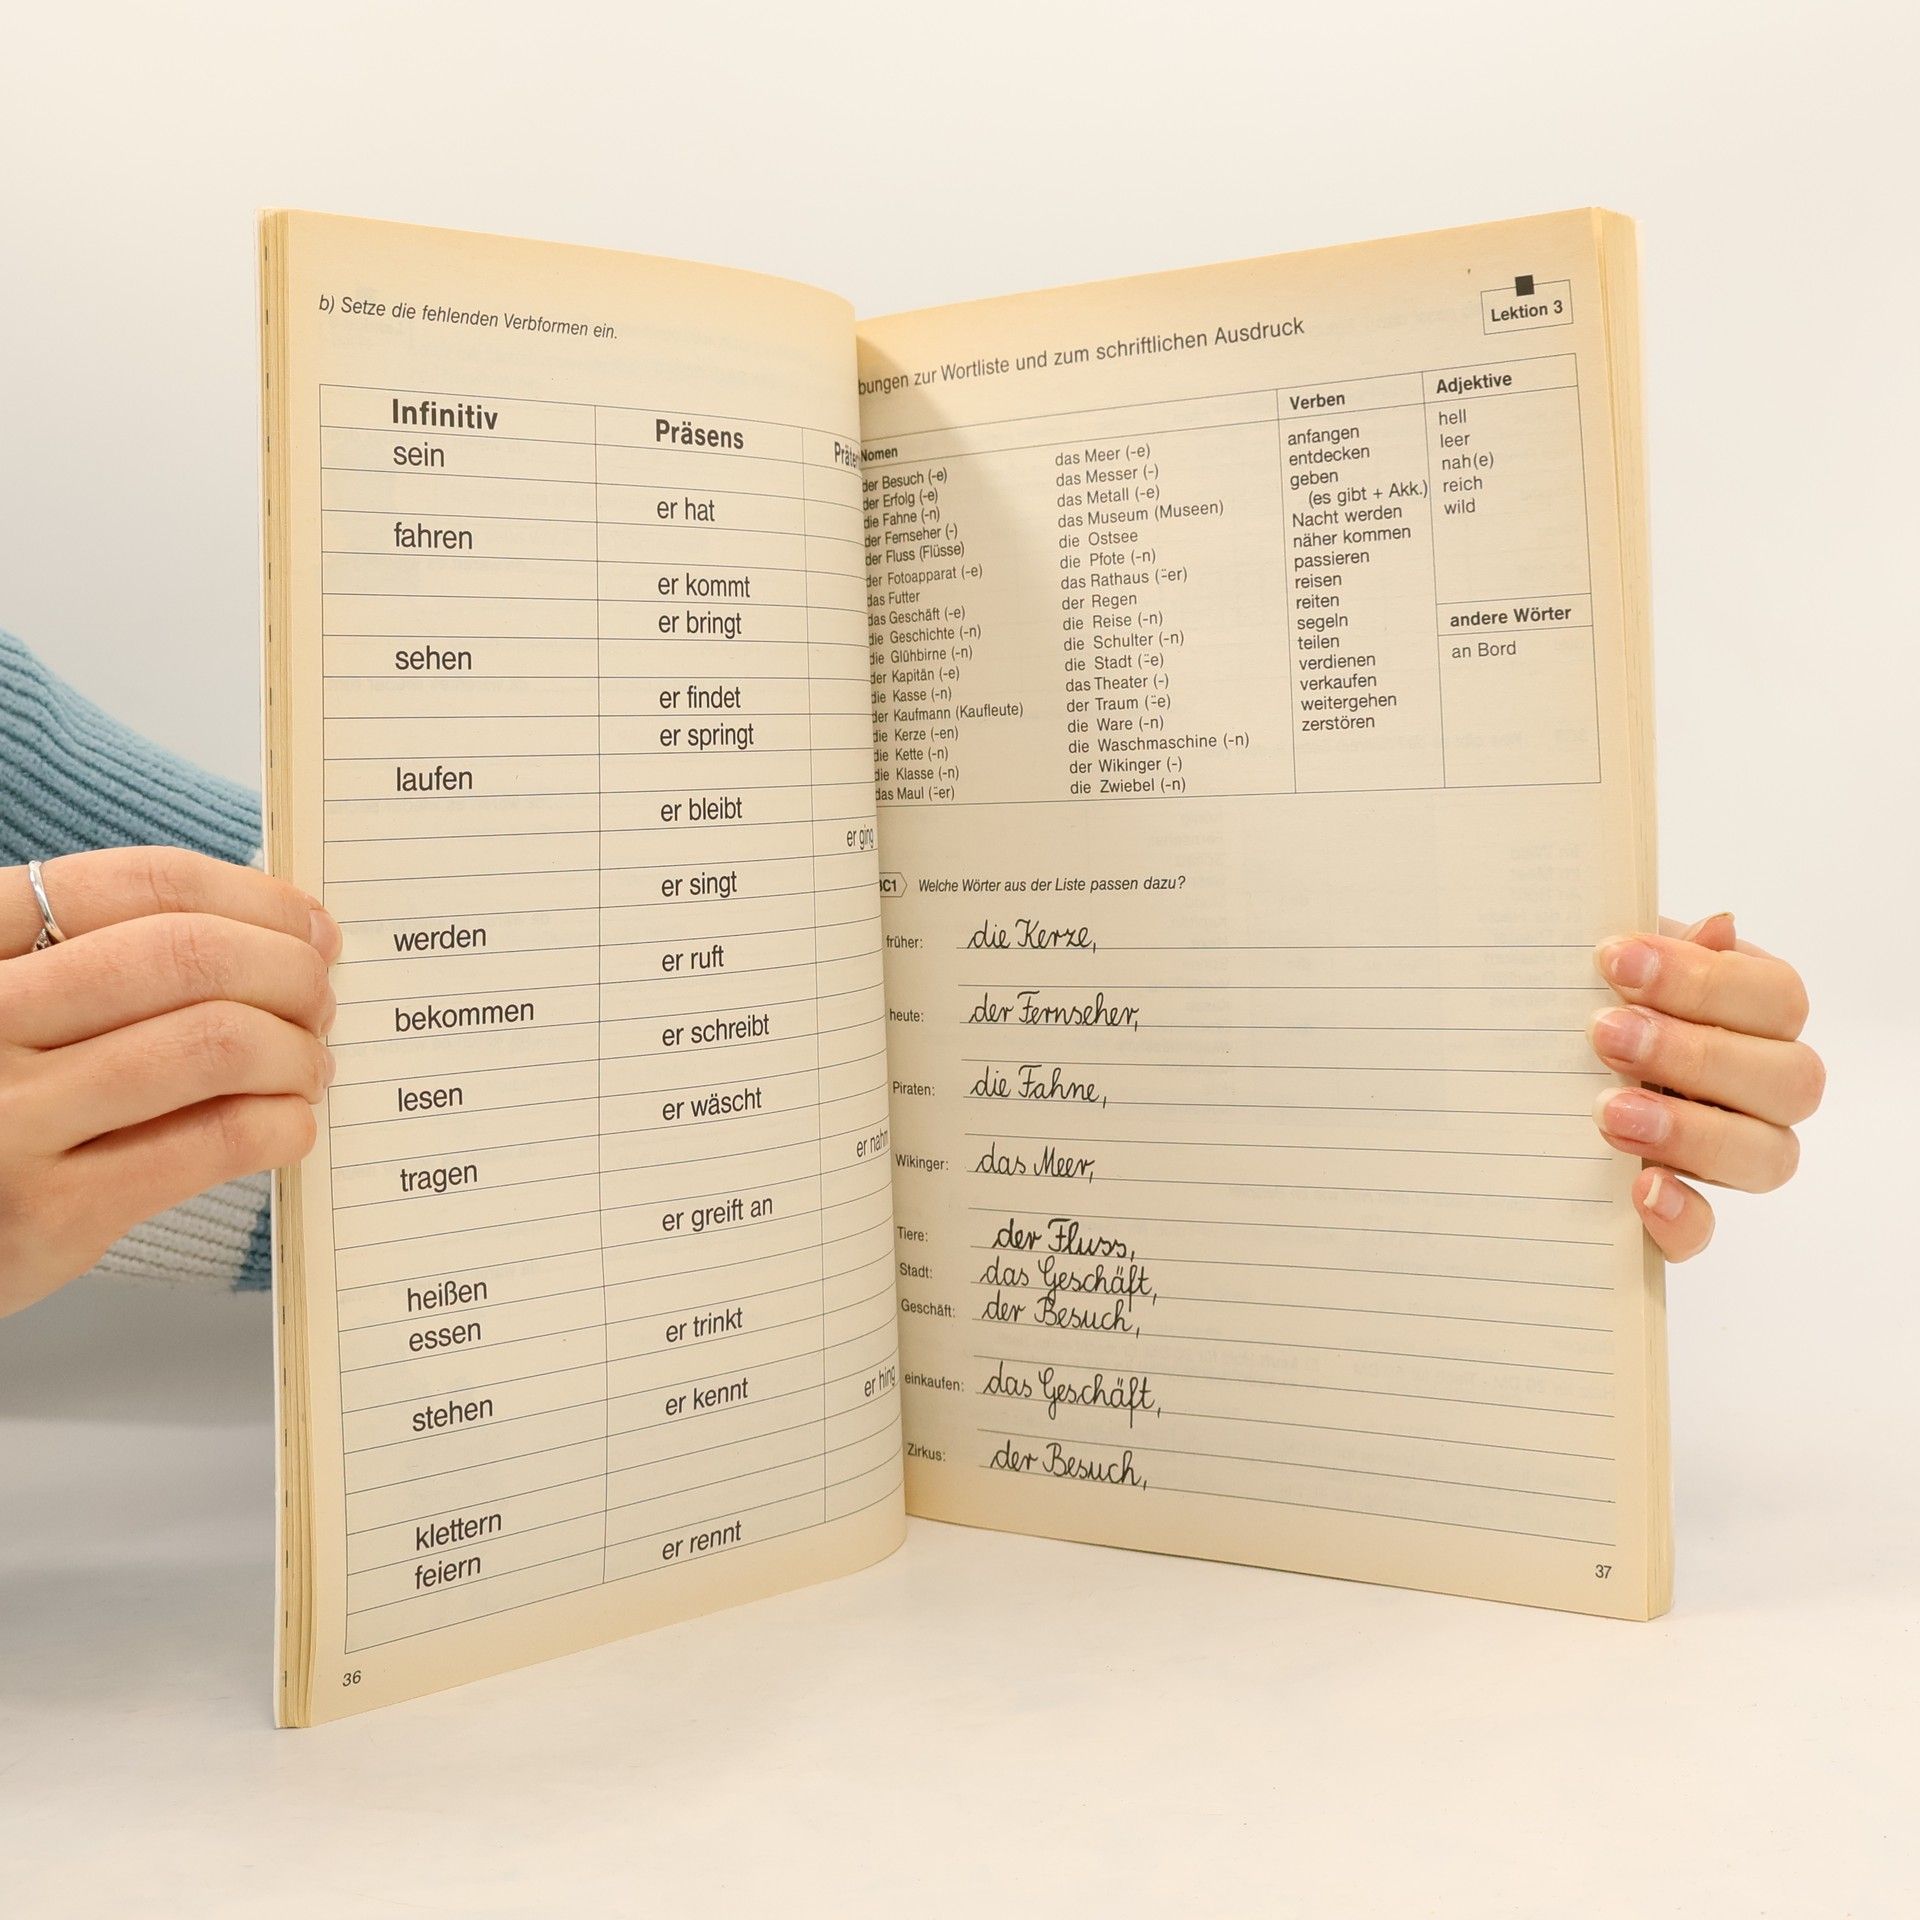 b) Setze die fehlenden Verbformen ein.
Infinitiv Präsens
sein
er hat
fahren
er kommt
er bringt
sehen
er findet
er springt
laufen
er bleibt
er ging
er singt
werden
er ruft
bekommen
er schreibt
lesen
er wäscht
er nahm
tragen
er greift an
heißen
essen er trinkt
er hing
stehen er kennt
klettern
feiern er rennt
36
Lektion 3
bungen zur Wortliste und zum schriftlichen Ausdruck
Nomen
der Besuch (-e)
der Erfolg (-e)
die Fahne (-n)
der Fernseher (-)
der Fluss (Flüsse)
der Fotoapparat (-e)
das Futter
das Geschäft (-e)
die Geschichte (-n)
die Glühbirne (-n)
der Kapitän (-e)
die Kasse (-n)
der Kaufmann (Kaufleute)
die Kerze (-en)
die Kette (-n)
die Klasse (-n)
das Maul (⸚er)
das Meer (-e)
das Messer (-)
das Metall (-e)
das Museum (Museen)
die Ostsee
die Pfote (-n)
das Rathaus (⸚er)
der Regen
die Reise (-n)
die Schulter (-n)
die Stadt (⸚e)
das Theater (-)
der Traum (⸚e)
die Ware (-n)
die Waschmaschine (-n)
der Wikinger (-)
die Zwiebel (-n)
Verben
anfangen
entdecken
geben
(es gibt + Akk.)
Nacht werden
näher kommen
passieren
reisen
reiten
segeln
teilen
verdienen
verkaufen
weitergehen
zerstören
Adjektive
hell
leer
nah(e)
reich
wild
andere Wörter
an Bord
C1 Welche Wörter aus der Liste passen dazu?
früher: die Kerze,
heute: der Fernseher,
Piraten: die Fahne,
Wikinger: das Meer,
Tiere: der Fluss,
Stadt: das Geschäft,
Geschäft: der Besuch,
einkaufen: das Geschäft,
Zirkus: der Besuch,
37